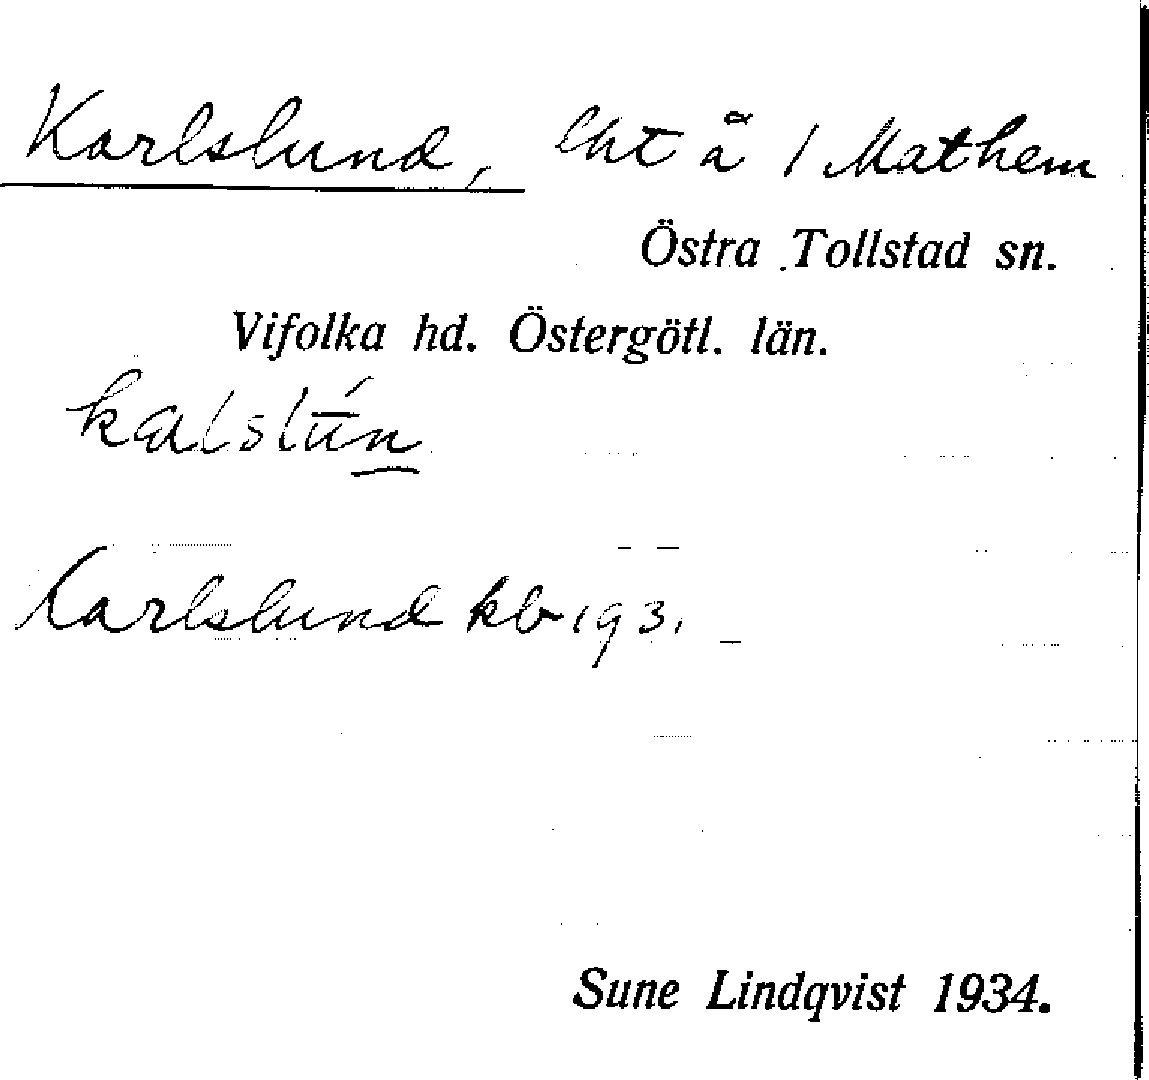 Karlslund, lht å 1 Mathem
Östra Tollstad sn.
Vifolka hd. Östergötl. län.
Karlslund kb 193.
Sune Lindqvist 1934.